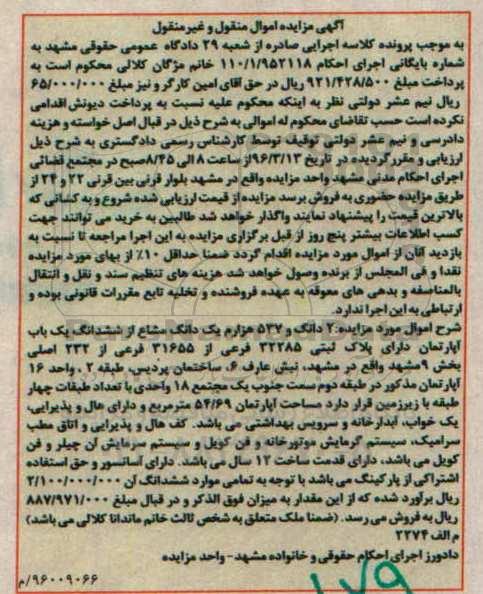 آگهی مزایده اموال منقول و غیرمنقول
به موجب پرونده کلاسه اجرایی صادره از شعبه ۲۹ دادگاه عمومی حقوقی مشهد به
شماره بایگانی اجرای احکام ۱۱۰/۱/۹۵۲۱۱۸ خانم مژگان کلالی محکوم است به
پرداخت مبلغ ۹۲۱/۴۲۸/۵۰۰ ریال در حق آقای امین کارگر و نیز مبلغ ۶۵/۰۰۰/۰۰۰
ریال نیم عشر دولتی نظر به اینکه محکوم علیه نسبت به پرداخت دیونش اقدامی
نکرده است حسب تقاضای محکوم له اموالی به شرح ذیل در قبال اصل خواسته و هزینه
دادرسی و نیم عشر دولتی توقیف توسط کارشناس رسمی دادگستری به شرح ذیل
ارزیابی و مقرر گردیده در تاریخ ۹۶/۳/۱۳از ساعت ۸ الی ۸/۴۵صبح در مجتمع قضائی
اجرای احکام مدنی مشهد واحد مزایده واقع در مشهد بلوار قرنی بین قرنی ۲۲ و ۲۴ از
طریق مزایده حضوری به فروش برسد مزایده از قیمت ارزیابی شده شروع و به کسانی که
بالاترین قیمت را پیشنهاد نمایند واگذار خواهد شد طالبین به خرید می توانند جهت
کسب اطلاعات بیشتر پنج روز از قبل برگزاری مزایده به این اجرا مراجعه تا نسبت به
بازدید آنان از اموال مورد مزایده اقدام گردد ضمنا حداقل ۱۰٪ از بهای مورد مزایده
نقدا و فی المجلس از برنده وصول خواهد شد هزینه های تنظیم سند و نقل و انتقال
بالمناصفه و بدهی های معوقه به عهده فروشنده و تخلیه تابع مقررات قانونی بوده و
ارتباطی به این اجرا ندارد.
شرح اموال مورد مزایده:۲ دانگ و ۵۳۷ هزارم یک دانگ مشاع از ششدانگ یک باب
آپارتمان دارای پلاک ثبتی ۳۲۲۸۵ فرعی از ۳۱۶۵۵ فرعی از ۲۳۲ اصلی
بخش ۹مشهد واقع در مشهد، نبش عارف ۶، ساختمان پردیس، طبقه ۲ ، واحد ۱۶
آپارتمان مذکور در طبقه دوم سمت جنوب یک مجتمع ۱۸ واحدی با تعداد طبقات چهار
طبقه با زیرزمین قرار دارد مساحت آپارتمان ۵۴/۶۹ مترمربع و دارای هال و پذیرایی،
یک خواب، آبدارخانه و سرویس بهداشتی می باشد. کف هال و پذیرایی و اتاق مطب
سرامیک، سیستم گرمایش موتورخانه و فن کویل و سیستم سرمایش آن چیلر و فن
کویل می باشد، دارای قدمت ساخت ۱۲ سال می باشد. دارای آسانسور و حق استفاده
اشتراکی از پارکینگ می باشد با توجه به تمامی موارد ششدانگ آن ۲/۱۰۰/۰۰۰/۰۰۰
ریال برآورد شده که از این مقدار به میزان فوق الذکر و در قبال مبلغ ۸۸۷/۹۷۱/۰۰۰
ریال به فروش می رسد. (ضمنا ملک متعلق به شخص ثالث خانم ماندانا کلالی می باشد)
م الف ۲۲۷۴
دادورز اجرای احکام حقوقی و خانواده مشهد- واحد مزایده
۹۶۰۰۹۰۶۶/م
۱۷۹